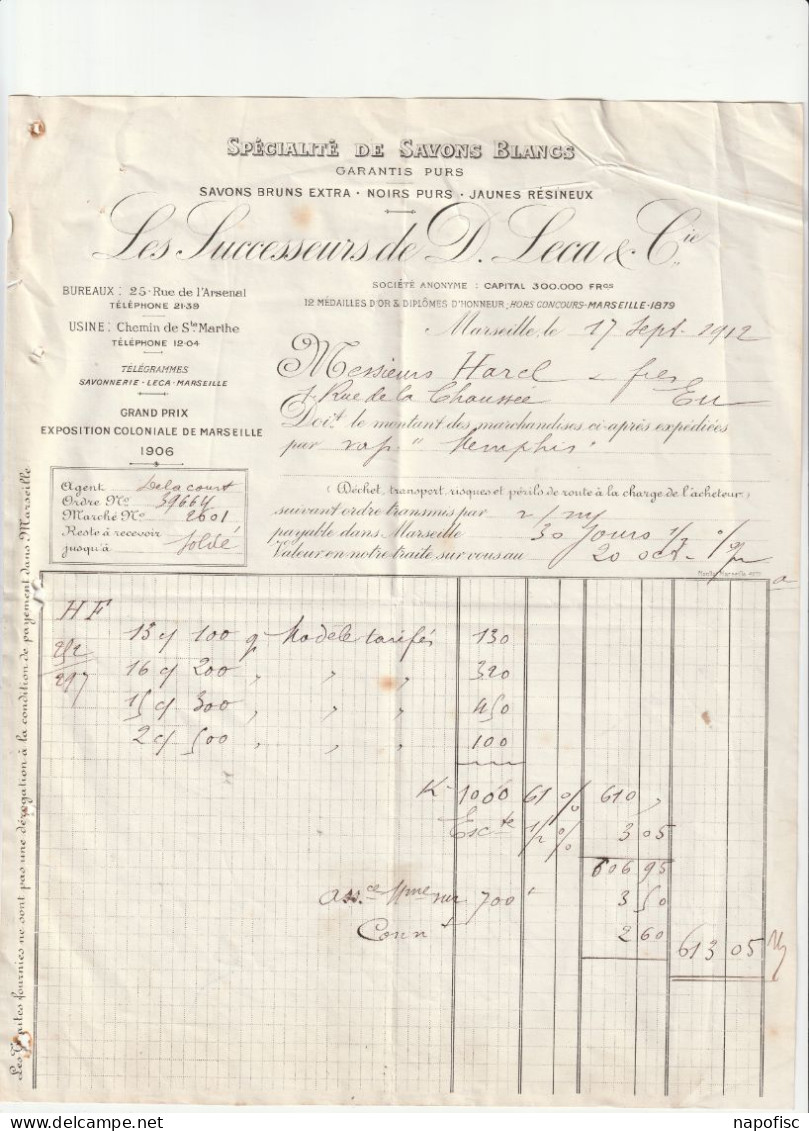 SPÉCIALITÉ DE SAVONS BLANCS
GARANTIS PURS
SAVONS BRUNS EXTRA · NOIRS PURS · JAUNES RÉSINEUX
Les Successeurs de D. Leca & Cie
BUREAUX : 25-Rue de l'Arsenal
TÉLÉPHONE 21-39
USINE : Chemin de Ste Marthe
TÉLÉPHONE 12-04
TÉLÉGRAMMES
SAVONNERIE-LECA-MARSEILLE
GRAND PRIX
EXPOSITION COLONIALE DE MARSEILLE
1906
SOCIÉTÉ ANONYME : CAPITAL 300.000 FRCS
12 MÉDAILLES D'OR & DIPLÔMES D'HONNEUR; HORS CONCOURS-MARSEILLE-1879
Marseille, le 17 Sept. 1912
Messieurs Harel & fres
1 Rue de la Chaussée Eu
Doit le montant des marchandises ci-après expédiées
par vap. "Memphis"
(Déchet, transport, risques et périls de route à la charge de l'acheteur)
suivant ordre transmis par
payable dans Marseille 30 Jours 1/2 %
Valeur en notre traite sur vous au 20 oct.
Agent Delacourt
Ordre No 39664
Marché No 2601
Reste à recevoir
jusqu'à soldé
Les Traites fournies ne sont pas une dérogation à la condition de payement dans Marseille
HF
252
297
13 c/ 100 g Modèle tarifés 130
16 c/ 200 " " 320
15 c/ 300 " " 450
2 c/ 500 " " 100
K 1000 61 % 610 "
Escte 1/2 % 3 05
606 95
Assce Mme sur 700 " 3 50
Connt 2 60
613 05
napofisc